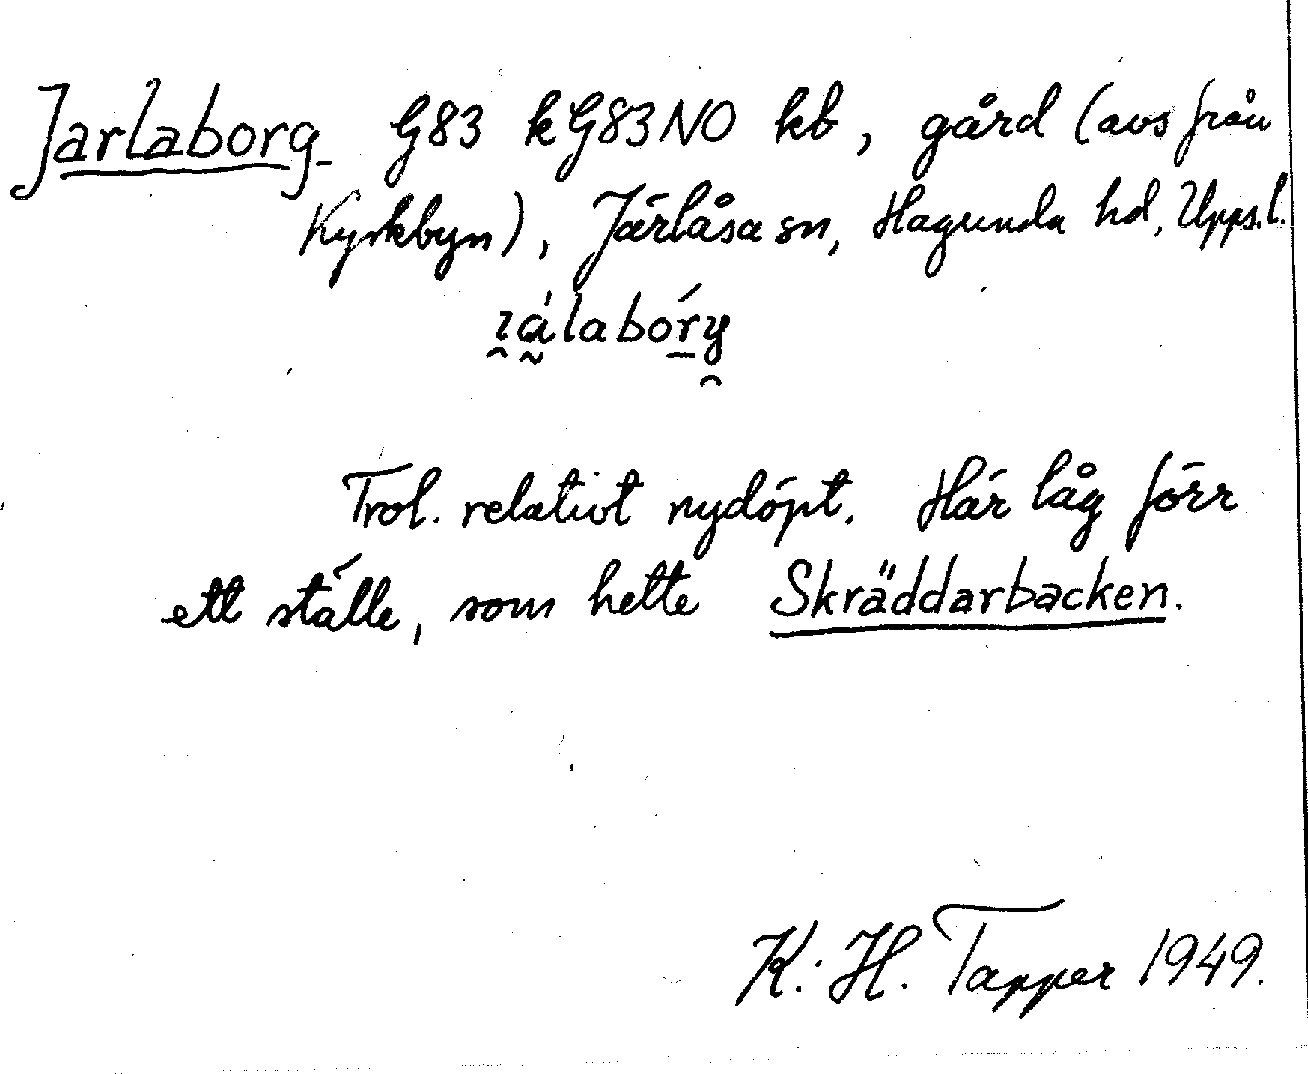 Jarlaborg G83 kG83NO kb, gård (avs från
Kyrkbyn), Järlåsa sn, Hagunda hd, Upps.l.
Trol. relativt nydöpt. Här låg förr
ett ställe, som hette Skräddarbacken.
K.H. Tapper 1949.